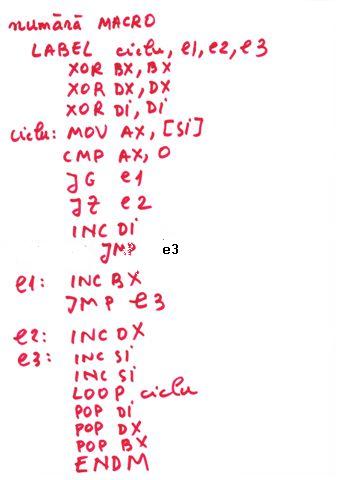 numără MACRO
LABEL ciclu, e1, e2, e3
XOR BX, BX
XOR DX, DX
XOR Di, Di
ciclu: MOV AX, [Si]
CMP AX, 0
JG e1
JZ e2
INC Di
JMP e3
e1: INC BX
JMP e3
e2: INC DX
e3: INC Si
INC Si
LOOP ciclu
POP Di
POP DX
POP BX
ENDM